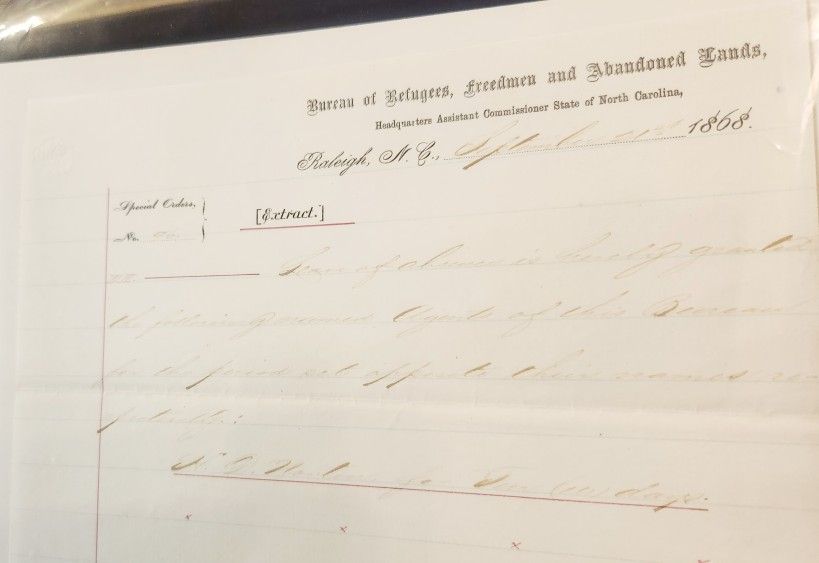 Bureau of Refugees, Freedmen and Abandoned Lands,
Headquarters Assistant Commissioner State of North Carolina,
Raleigh, N. C., September 21st 1868.
Special Orders,
[Extract.]
No.
Leave of absence is hereby granted
the following named Agents of this Bureau
for the period set opposite their names re-
pectively:
for Ten (10) days.